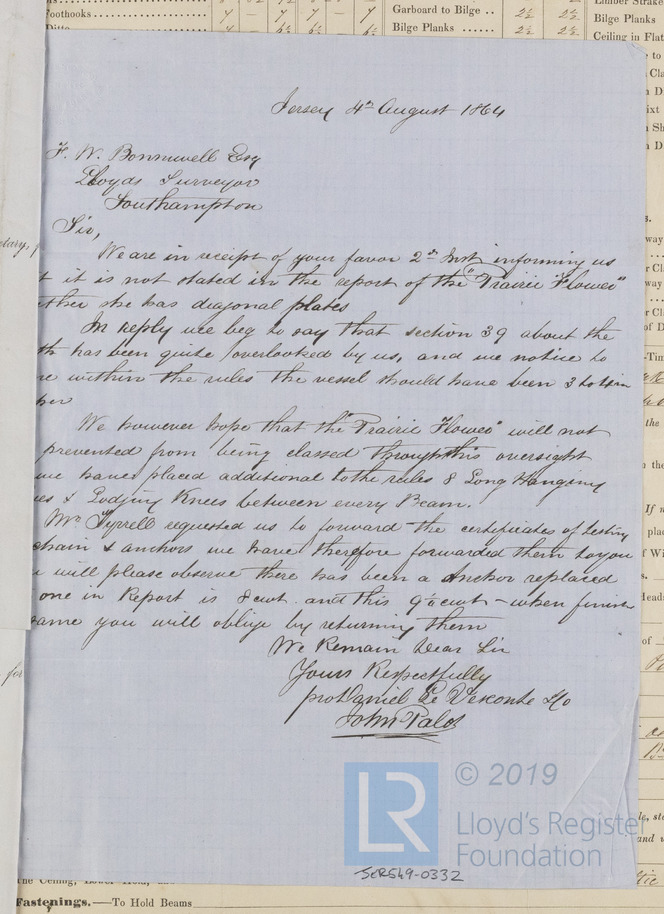 Foothooks 7 – 7 7 – 7
Garboard to Bilge .. 2½ 2½
Bilge Planks ...... 2½ 2½
Limber Strake
Bilge Planks
Ceiling in Flat
Jersey 4th August 1864
F. W. Bonniwell Esq
Lloyds Surveyor
Southampton
Sir,
We are in receipt of your favor 2nd Inst informing us
it is not stated in the report of the "Prairie Flower"
ether she has diagonal plates
In reply we beg to say that section 39 about the
th has been quite overlooked by us, and we notice to
within the rules the vessel should have been 3
per
We however hope that the "Prairie Flower" will not
prevented from being classed through this oversight
we have placed additional to the rules 8 Long Hanging
es & Lodging Knees between every Beam.
Mr. Tyrrell requested us to forward the certificates of testing
chain & anchors we have therefore forwarded them to you
u will please observe there has been a Anchor replaced
one in Report is 8 cwt. and this 9½ cwt – when finish
same you will oblige by returning them
We Remain Dear Sir
Yours Respectfully
pro Daniel Le Vesconte &Co
John Palot
LR
© 2019
Lloyd's Register
Foundation
SER549-0332
Fastenings.—To Hold Beams